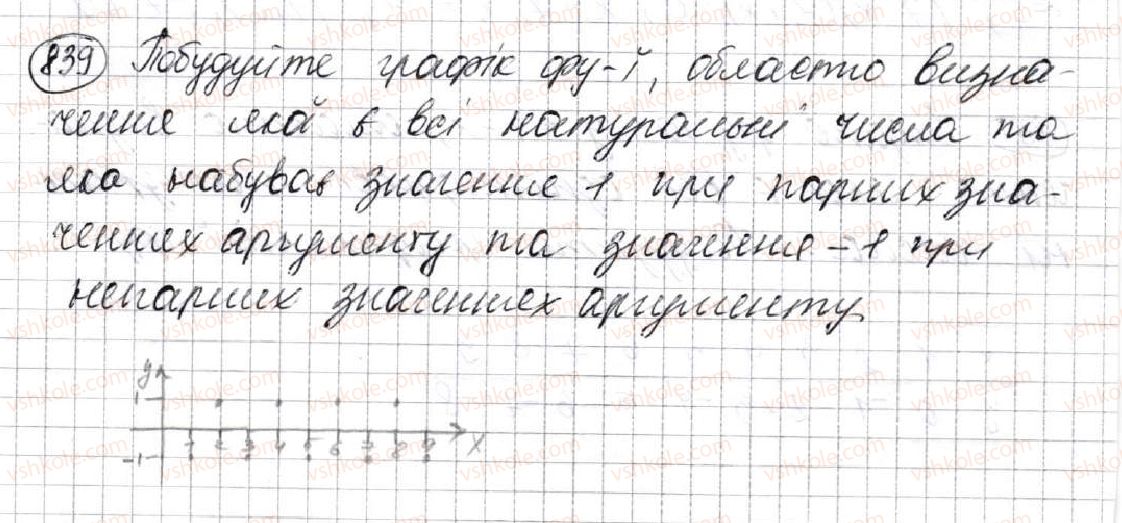 839 Побудуйте графік фу-ї, областю визна-
чення якої є всі натуральні числа та
яка набуває значення 1 при парних зна-
ченнях аргументу та значення -1 при
непарних значеннях аргументу
y
1
1 2 3 4 5 6 7 8 9 x
-1